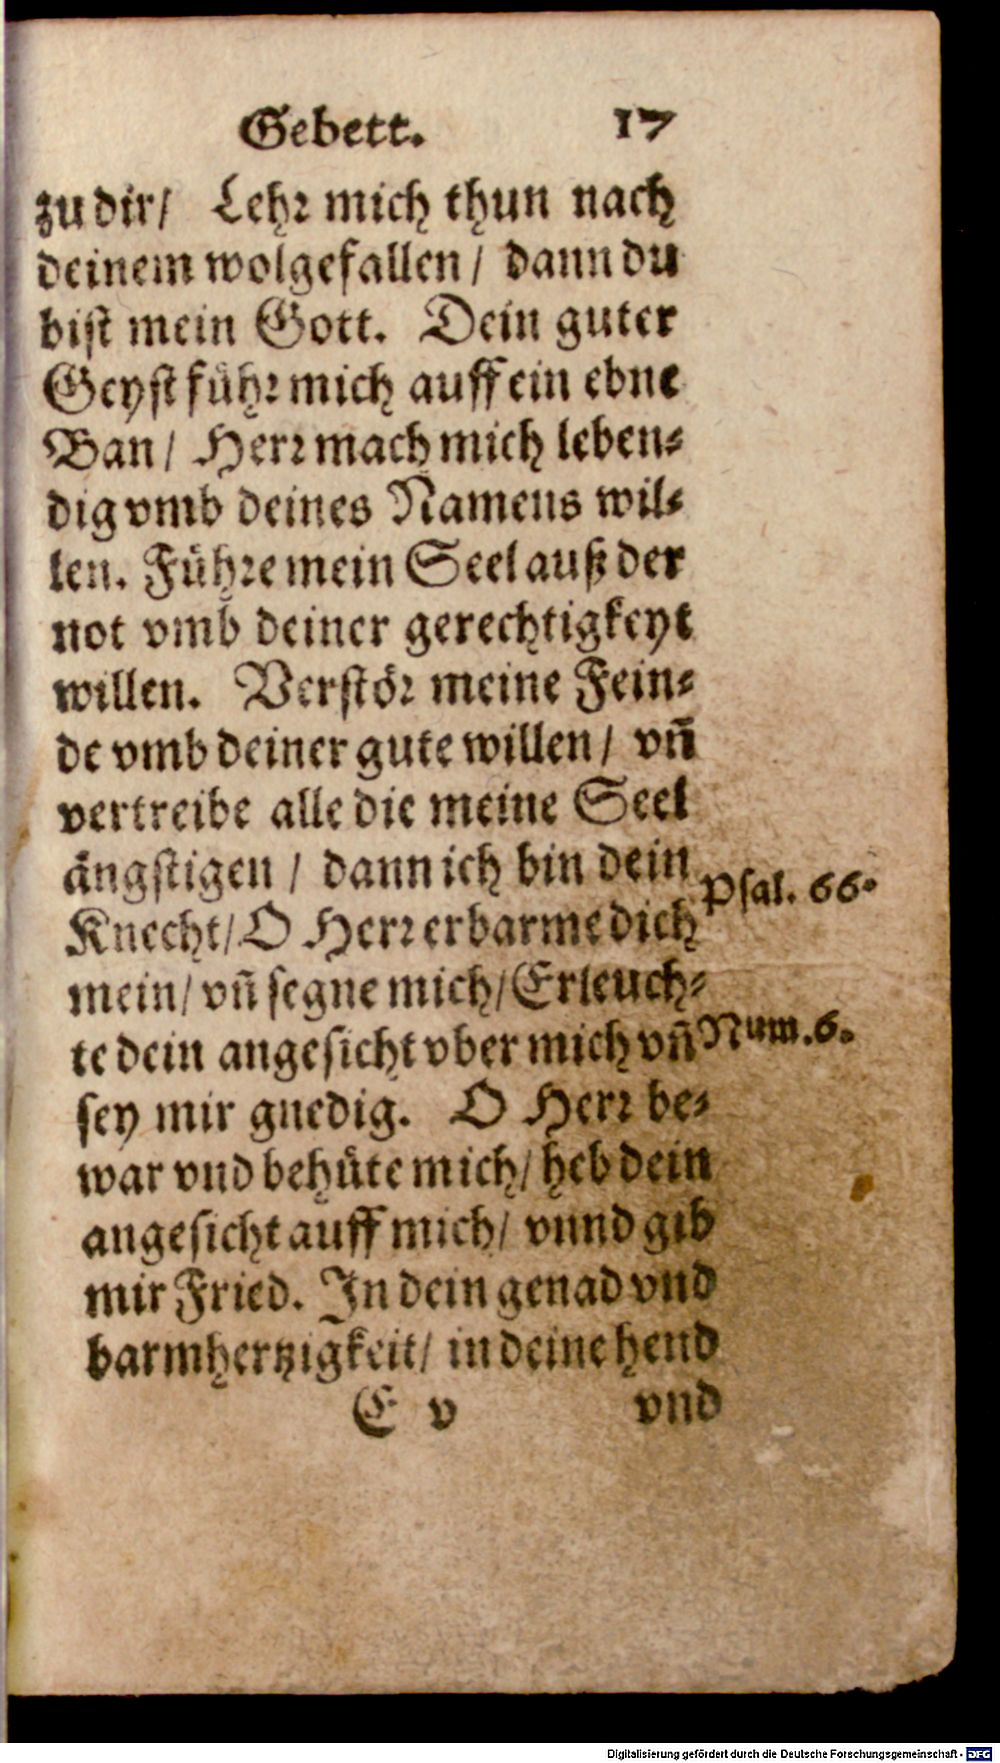 Gebett. 17
zu dir/ Lehr mich thun nach
deinem wolgefallen/ dann du
bist mein Gott. Dein guter
Geyst führ mich auff ein ebne
Ban/ Herr mach mich leben⸗
dig vmb deines Namens wil⸗
len. Führe mein Seel auß der
not vmb deiner gerechtigkeyt
willen. Verstör meine Fein⸗
de vmb deiner gute willen/ vñ
vertreibe alle die meine Seel
ängstigen/ dann ich bin dein
Knecht/ O Herr erbarme dich
Psal. 66.
mein/ vñ segne mich/ Erleuch⸗
te dein angesicht vber mich vñ
Num. 6.
sey mir gnedig. O Herr be⸗
war vnd behüte mich/ heb dein
angesicht auff mich/ vnnd gib
mir Fried. In dein genad vnd
barmhertzigkeit/ in deine hend
E v vnd
Digitalisierung gefördert durch die Deutsche Forschungsgemeinschaft - DFG